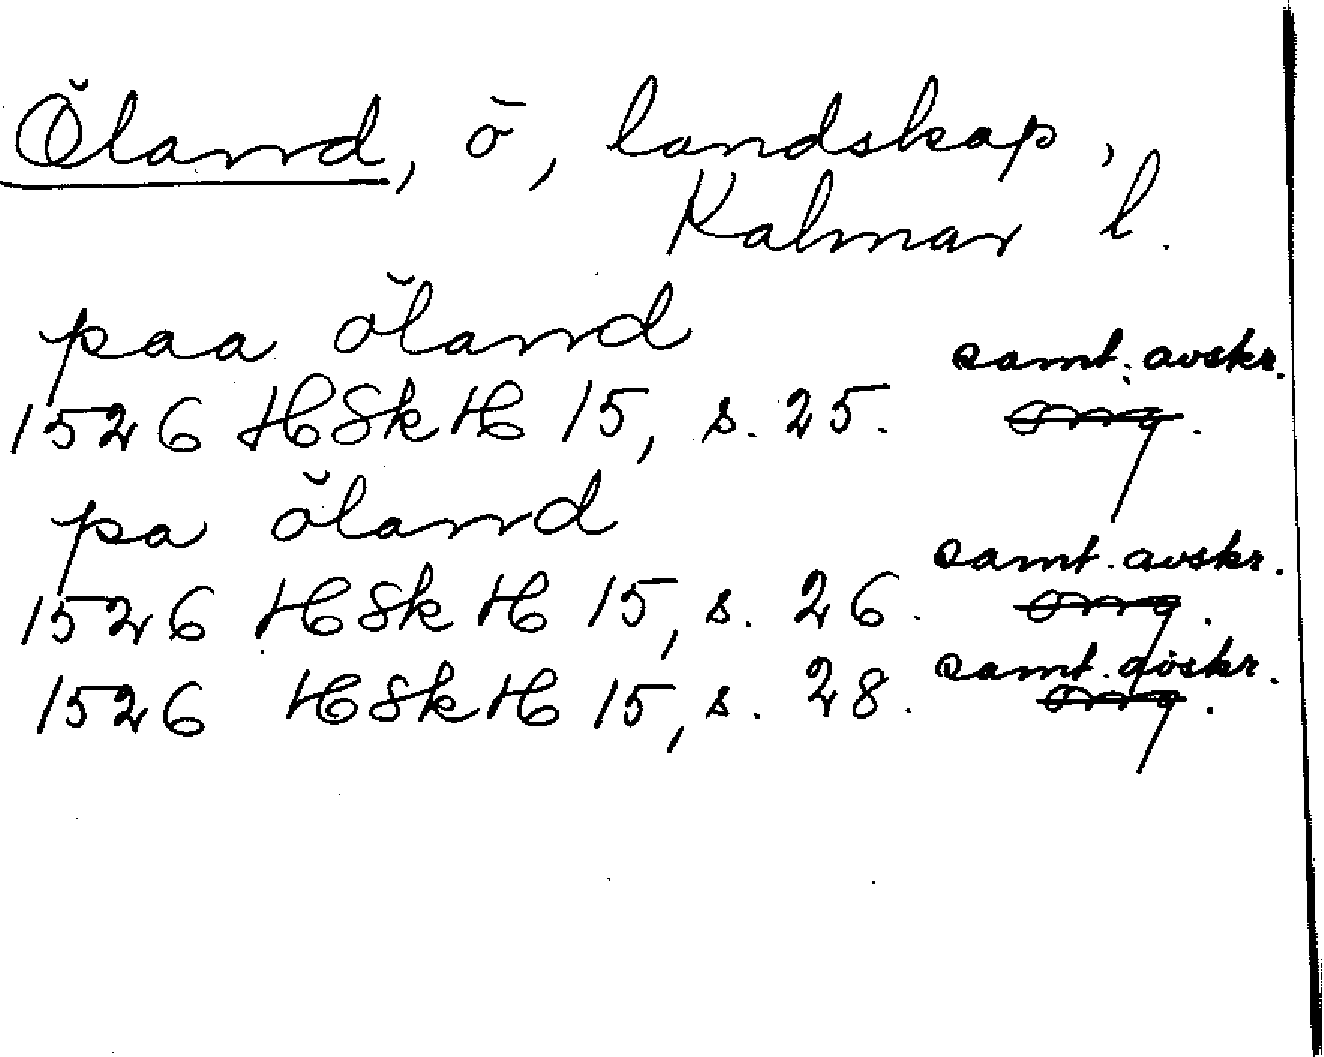 Öland, ö, landskap,
Kalmar l.
paa öland
samt. avskr.
1526 HSkH 15, s. 25. org.
pa öland
samt. avskr.
1526 HSkH 15, s. 26. org.
samt. avskr.
1526 HSkH 15, s. 28. org.